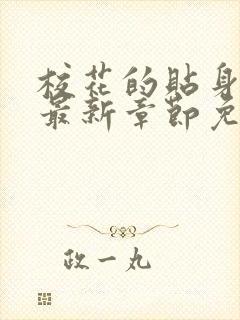 校花的貼身
最新章節免
政一丸